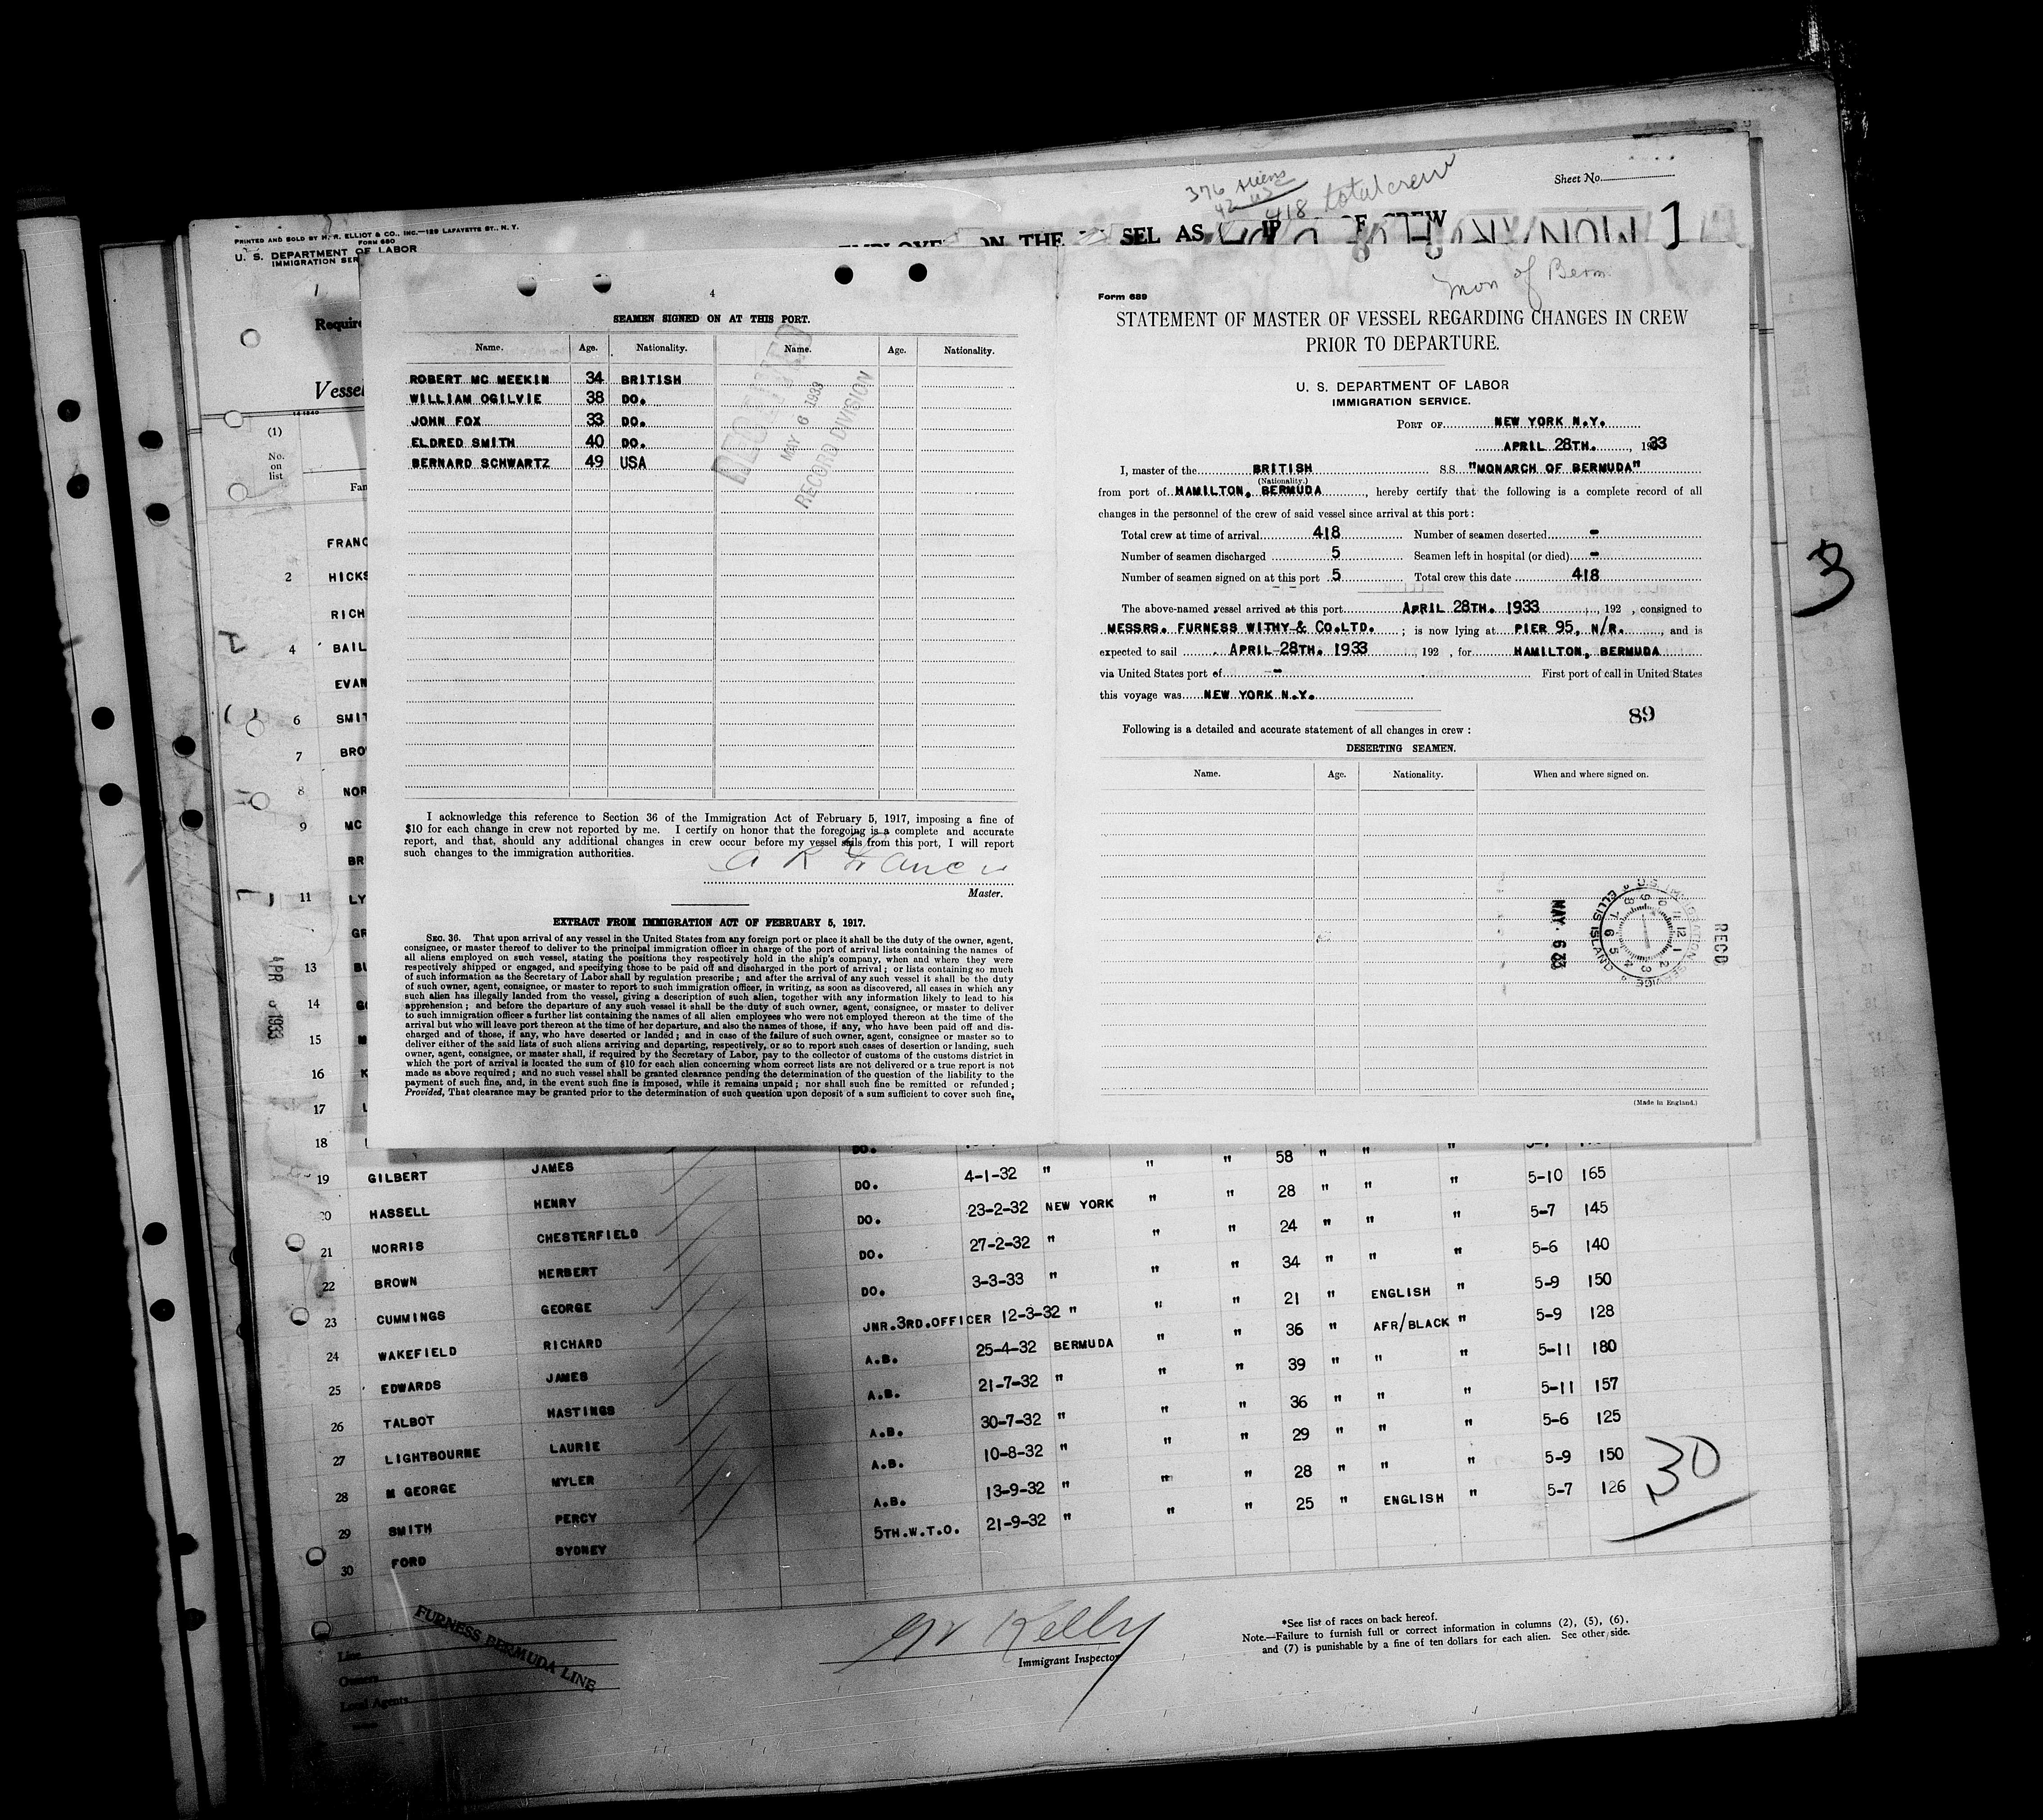 Sheet No.
376 Aliens
42 USC
418 total crew
PRINTED AND SOLD BY H. R. ELLIOT & CO., INC.—129 LAFAYETTE ST., N. Y.
FORM 680
U. S. DEPARTMENT OF LABOR
IMMIGRATION SER
ON THE SEL AS OF CREW
1
Require
Vessel
(1)
No.
on
list
Fam
FRANC
2 HICKS
RICH
4 BAIL
EVAN
6 SMIT
7 BRO
8 NOR
9 MC
BR
11 LY
GR
13 BU
14
15
16
17
18
APR 1933
3
4
SEAMEN SIGNED ON AT THIS PORT.
Name. Age. Nationality. Name. Age. Nationality.
ROBERT MC MEEKIN 34 BRITISH
WILLIAM OGILVIE 38 DO.
JOHN FOX 33 DO.
ELDRED SMITH 40 DO.
BERNARD SCHWARTZ 49 USA
RECEIVED
MAY 6 1933
RECORD DIVISION
I acknowledge this reference to Section 36 of the Immigration Act of February 5, 1917, imposing a fine of
$10 for each change in crew not reported by me. I certify on honor that the foregoing is a complete and accurate
report, and that, should any additional changes in crew occur before my vessel sails from this port, I will report
such changes to the immigration authorities.
A R Francis
Master.
EXTRACT FROM IMMIGRATION ACT OF FEBRUARY 5, 1917.
SEC. 36. That upon arrival of any vessel in the United States from any foreign port or place it shall be the duty of the owner, agent,
consignee, or master thereof to deliver to the principal immigration officer in charge of the port of arrival lists containing the names of
all aliens employed on such vessel, stating the positions they respectively hold in the ship's company, when and where they were
respectively shipped or engaged, and specifying those to be paid off and discharged in the port of arrival; or lists containing so much
of such information as the Secretary of Labor shall by regulation prescribe; and after the arrival of any such vessel it shall be the duty
of such owner, agent, consignee, or master to report to such immigration officer, in writing, as soon as discovered, all cases in which any
such alien has illegally landed from the vessel, giving a description of such alien, together with any information likely to lead to his
apprehension; and before the departure of any such vessel it shall be the duty of such owner, agent, consignee, or master to deliver
to such immigration officer a further list containing the names of all alien employees who were not employed thereon at the time of the
arrival but who will leave port thereon at the time of her departure, and also the names of those, if any, who have been paid off and dis-
charged and of those, if any, who have deserted or landed; and in case of the failure of such owner, agent, consignee or master so to
deliver either of the said lists of such aliens arriving and departing, respectively, or so to report such cases of desertion or landing, such
owner, agent, consignee, or master shall, if required by the Secretary of Labor, pay to the collector of customs of the customs district in
which the port of arrival is located the sum of $10 for each alien concerning whom correct lists are not delivered or a true report is not
made as above required; and no such vessel shall be granted clearance pending the determination of the question of the liability to the
payment of such fine, and, in the event such fine is imposed, while it remains unpaid; nor shall such fine be remitted or refunded;
Provided, That clearance may be granted prior to the determination of such question upon deposit of a sum sufficient to cover such fine,
Mon of Berm.
Form 689
STATEMENT OF MASTER OF VESSEL REGARDING CHANGES IN CREW
PRIOR TO DEPARTURE.
U. S. DEPARTMENT OF LABOR
IMMIGRATION SERVICE.
PORT OF NEW YORK N.Y.
APRIL 28TH. , 1933
I, master of the BRITISH S.S. "MONARCH OF BERMUDA"
(Nationality.)
from port of HAMILTON, BERMUDA, hereby certify that the following is a complete record of all
changes in the personnel of the crew of said vessel since arrival at this port:
Total crew at time of arrival 418 Number of seamen deserted -
Number of seamen discharged 5 Seamen left in hospital (or died) -
Number of seamen signed on at this port 5 Total crew this date 418
The above-named vessel arrived at this port APRIL 28TH. 1933, 192 , consigned to
MESSRS. FURNESS WITHY & CO.LTD. ; is now lying at PIER 95, N/R. , and is
expected to sail APRIL 28TH. 1933 192 , for HAMILTON, BERMUDA
via United States port of - First port of call in United States
this voyage was NEW YORK N.Y.
89
Following is a detailed and accurate statement of all changes in crew:
DESERTING SEAMEN.
Name. Age. Nationality. When and where signed on.
REC'D
U.S. IMMIGRATION SERVICE ELLIS ISLAND
MAY 6 33
(Made in England.)
19 GILBERT JAMES DO. 4-1-32 " " " 58 " " " 5-10 165
20 HASSELL HENRY DO. 23-2-32 NEW YORK " " 28 " " " 5-7 145
21 MORRIS CHESTERFIELD DO. 27-2-32 " " " 24 " " " 5-6 140
22 BROWN HERBERT DO. 3-3-33 " " " 34 " " " 5-9 150
23 CUMMINGS GEORGE JNR.3RD.OFFICER 12-3-32 " " " 21 " ENGLISH " 5-9 128
24 WAKEFIELD RICHARD A.B. 25-4-32 BERMUDA " " 36 " AFR/BLACK " 5-11 180
25 EDWARDS JAMES A.B. 21-7-32 " " " 39 " " " 5-11 157
26 TALBOT HASTINGS A.B. 30-7-32 " " " 36 " " " 5-6 125
27 LIGHTBOURNE LAURIE A.B. 10-8-32 " " " 29 " " " 5-9 150
28 M GEORGE MYLER A.B. 13-9-32 " " " 28 " " " 5-7 126
29 SMITH PERCY 5TH.W.T.O. 21-9-32 " " " 25 " ENGLISH "
30 FORD SYDNEY
30
FURNESS BERMUDA LINE
Line
Owners
Local Agents
Kelly
Immigrant Inspector
*See list of races on back hereof.
Note.—Failure to furnish full or correct information in columns (2), (5), (6),
and (7) is punishable by a fine of ten dollars for each alien. See other side.